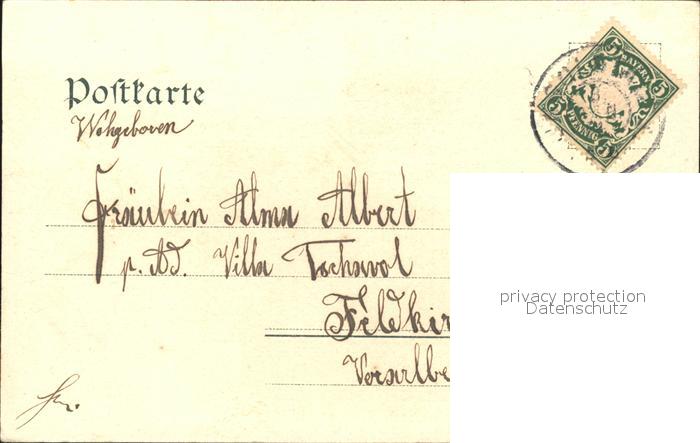 Postkarte
Wohgeboren
Fräulein Alma Albert
p. Ad. Villa Tochavol
Feldkir
Vorarlbe
5 BAYERN 5
5 PFENNIG 5
privacy protection
Datenschutz